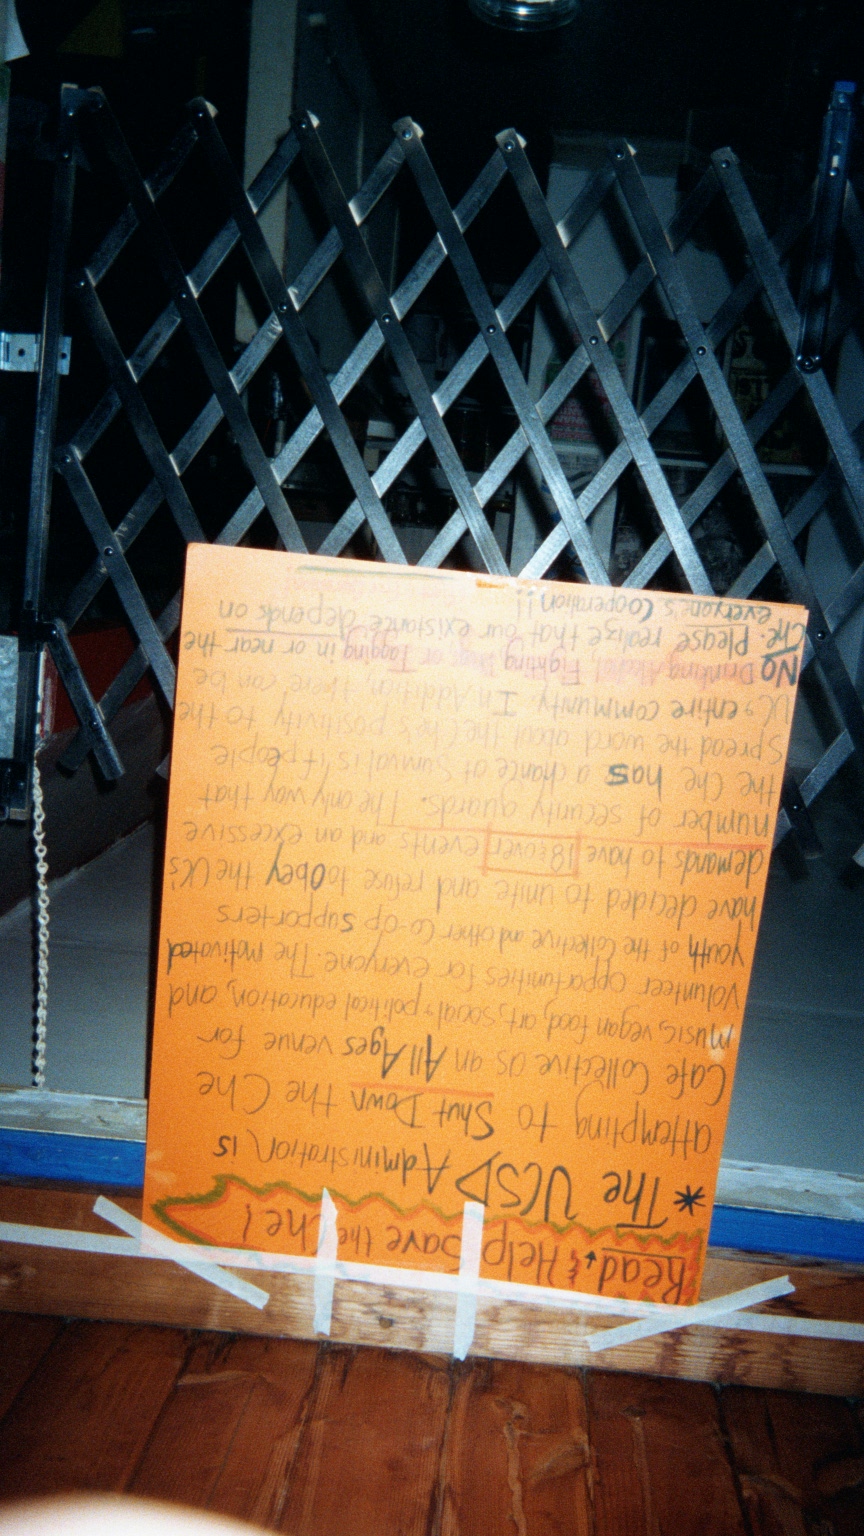 Read & Help Save the Che!
* The UCSD Administration is
attempting to Shut Down the Che
Cafe Collective as an All Ages venue for
music, vegan food, art, social & political education, and,
volunteer opportunities for everyone. The motivated
youth of the Collective and other Co-op supporters
have decided to unite and refuse to obey the UC's
demands to have 18 & over events and an excessive
number of security guards. The only way that
the Che has a chance of Survival is if people
Spread the word about the Che's positivity to the
UC & entire community. In Addition, there can be
No Drinking Alcohol, Fighting, Drugs, or Tagging in or near the
Che. Please realize that our existance depends on
everyone's Cooperation!!